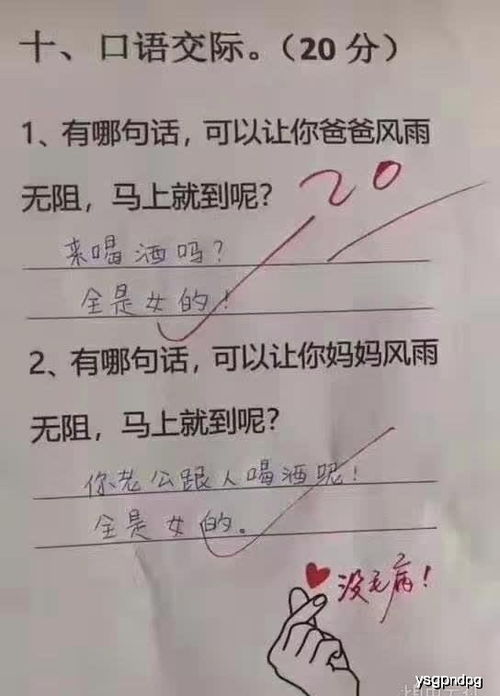 十、口语交际。（20 分）
1、有哪句话，可以让你爸爸风雨
无阻，马上就到呢？
20
来喝酒吗？
全是女的！
2、有哪句话，可以让你妈妈风雨
无阻，马上就到呢？
你老公跟人喝酒呢！
全是女的。
没毛病！
ysgpndpg